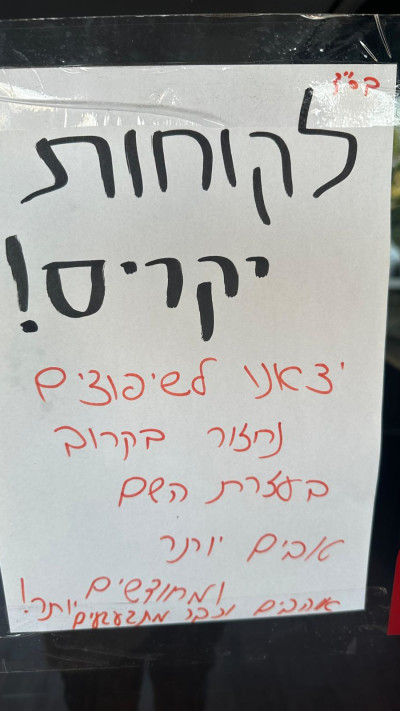 בס"ד
לקוחות
יקרים!
יצאנו לשיפוצים
נחזור בקרוב
בעזרת השם
טובים יותר
ומחודשים יותר!
אוהבים וכבר מתגעגעים